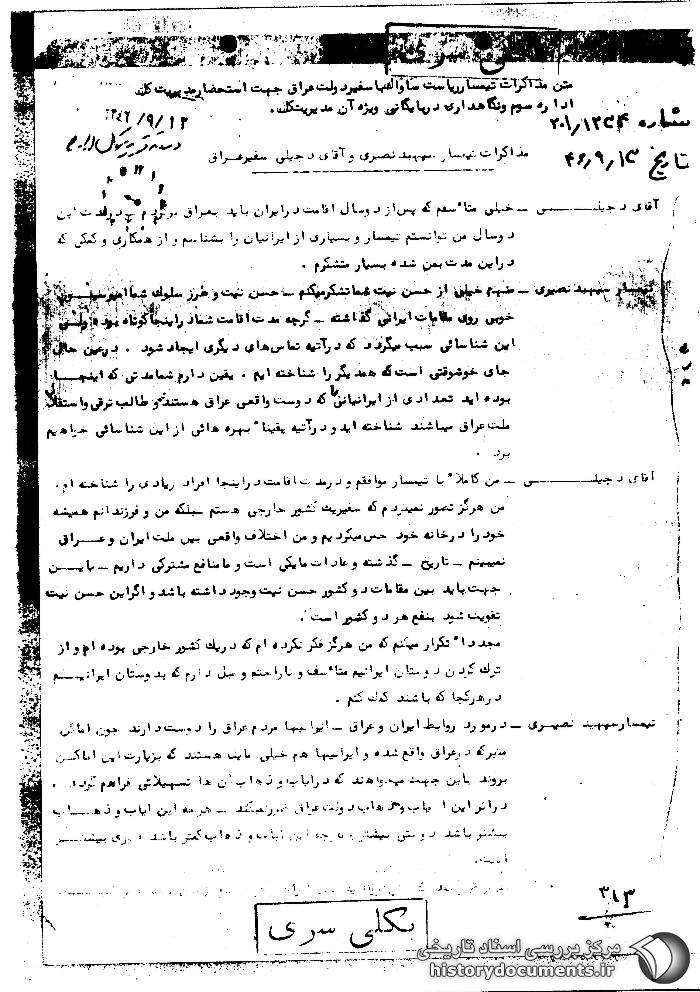 بکلی سری
متن مذاکرات تیمسار ریاست ساواک با سفیر دولت عراق جهت استحضار مدیریت کل
اداره سوم و نگاهداری در بایگانی ویژه آن مدیریت کل.
شماره ۲۰۱/۱۲۳۴
۱۳۴۶/۹/۱۲
تاریخ ۴۶،۹،۱۳
مذاکرات تیمسار سپهبد نصیری و آقای دجیلی سفیر عراق
آقای دجیلی ــ خیلی متأسفم که پس از دو سال اقامت در ایران باید بعراق برگردم در مدت این
دو سال من توانستم تیمسار و بسیاری از ایرانیان را بشناسم و از همکاری و کمکی که
در این مدت بمن شده بسیار متشکرم .
تیمسار سپهبد نصیری ــ منهم خیلی از حسن نیت شما تشکر میکنم ــ حسن نیت و طرز سلوک شما
خوبی روی مقامات ایرانی گذاشته ــ گرچه مدت اقامت شما در اینجا کوتاه بوده ولی
این شناسائی سبب میگردد که در آتیه تماس‌های دیگری ایجاد شود . در عین حال
جای خوشوقتی است که همدیگر را شناخته ایم . یقین دارم شما مدتی که اینجا
بوده اید تعدادی از ایرانیانی را که دوست واقعی عراق هستند و طالب ترقی و استقلال
ملت عراق میباشند شناخته اید و در آتیه یقیناً بهره هائی از این شناسائی خواهیم
برد .
آقای دجیلی ــ من کاملاً با تیمسار موافقم و در مدت اقامت در اینجا افراد زیادی را شناخته ام .
من هرگز تصور نمیکردم که سفیر یک کشور خارجی هستم ــ بلکه من و فرزندانم همیشه
خود را در خانه خود حس میکردیم و من اختلاف واقعی بین ملت ایران و عراق
نمیبینم ــ تاریخ ــ گذشته و عادات ما یکی است و ما منافع مشترکی داریم ــ باین
جهت باید بین مقامات دو کشور حسن نیت وجود داشته باشد و اگر این حسن نیت
تقویت شود بنفع هر دو کشور است .
مجدداً تکرار میکنم که من هرگز فکر نکرده ام که در یک کشور خارجی بوده ام و از
ترک کردن دوستان ایرانیم متأسف و ناراحتم و میل دارم که بدوستان ایرانیم
در هر کجا که باشند کمک کنم .
تیمسار سپهبد نصیری ــ در مورد روابط ایران و عراق ــ ایرانیها مردم عراق را دوست دارند چون اماکن
متبرکه در عراق واقع شده و ایرانیها هم خیلی مایل هستند که بزیارت این اماکن
بروند باین جهت میخواهند که در ایاب و ذهاب آن ها تسهیلاتی فراهم گردد .
در اثر این ایاب و ذهاب دولت عراق ضرر نمیکند ــ هر چه این ایاب و ذهاب
بیشتر باشد دوستی بیشتر و هر چه این ایاب و ذهاب کمتر باشد دوری بیشتر
است .
۳۱۳
بکلی سری
مرکز بررسی اسناد تاریخی
historydocuments.ir